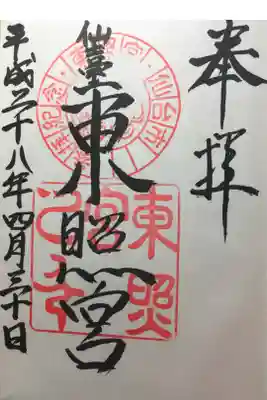 奉拝
仙臺東照宮
平成二十八年四月三十日
東照宮